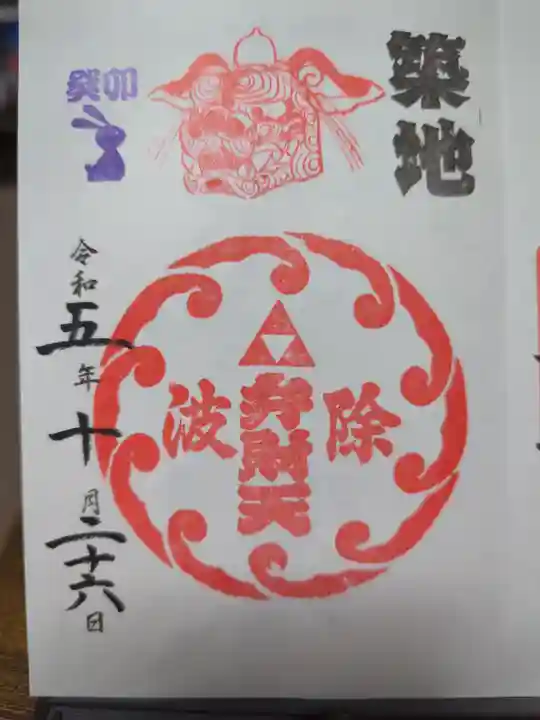 築地
癸卯
除波
弁財天
令和五年十月二十六日